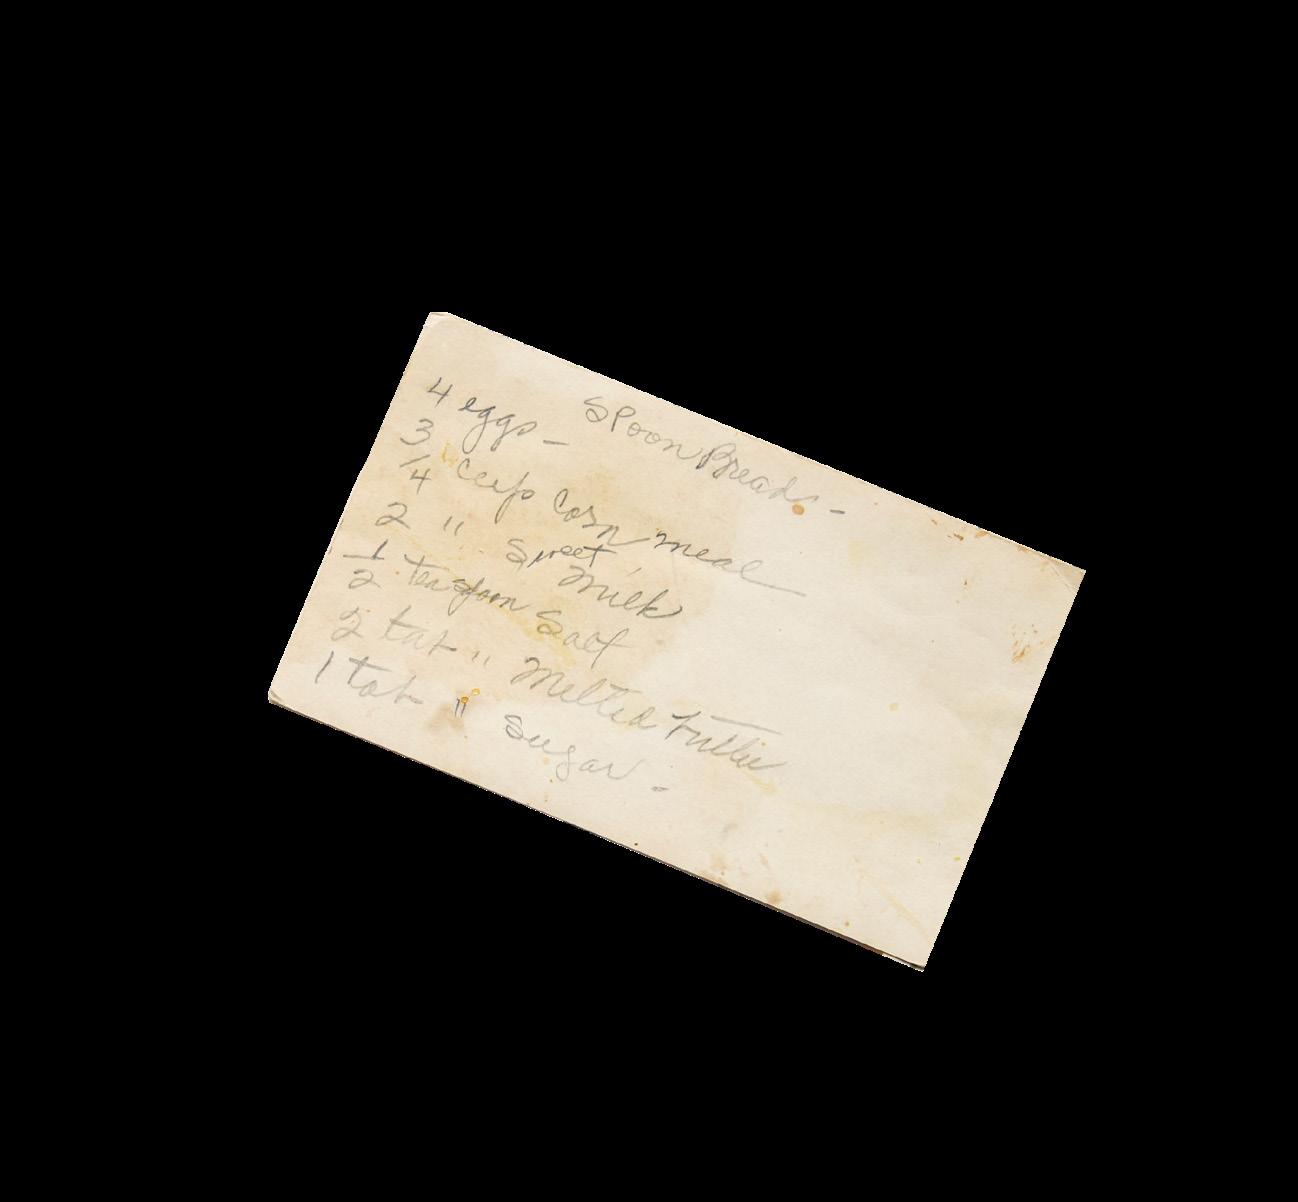 Spoon Bread -
4 eggs -
3/4 cup Corn meal
2 " Sweet Milk
1/2 teaspoon Salt
2 tab " Melted butter
1 tab " Sugar -